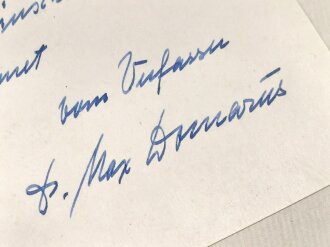 vom Verfasser
Dr. Max Domarus